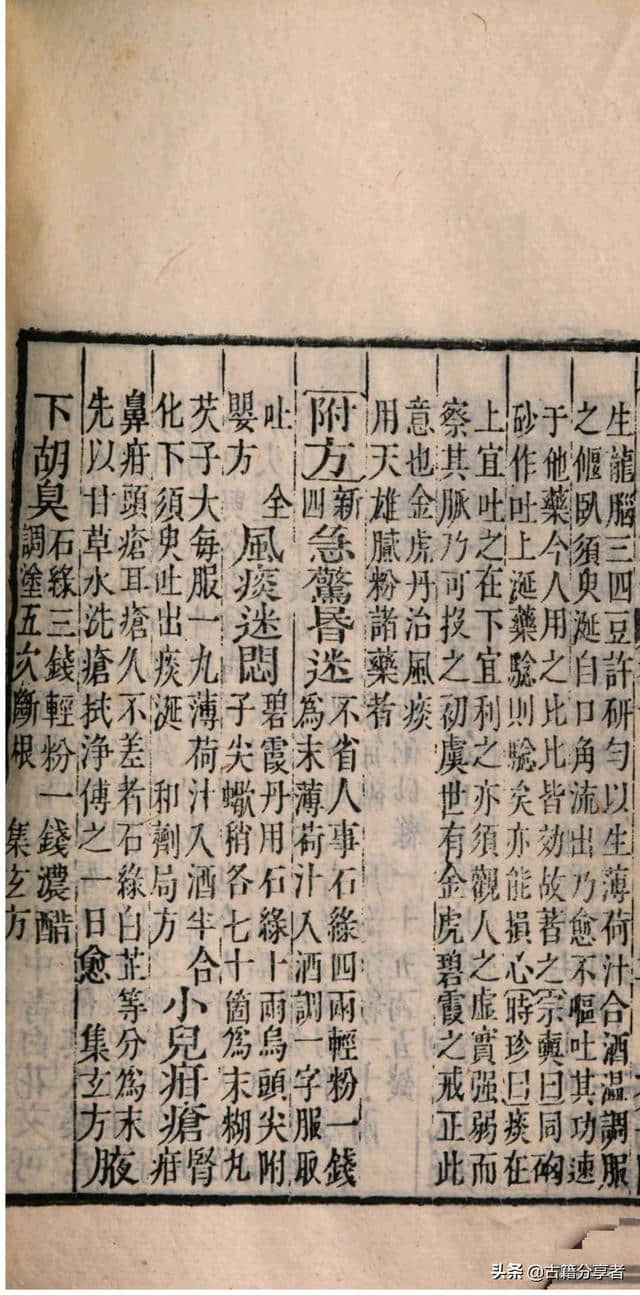 生龍腦三四豆許研勻以生薄荷汁合酒溫調服
之偃臥須臾涎自口角流出乃愈不嘔吐其功速
于他藥今人用之比比皆効故著之宗奭曰同硇
砂作吐上涎藥驗則驗矣亦能損心時珍曰痰在
上宜吐之在下宜利之亦須觀人之虛實强弱而
察其脈乃可投之初虞世有金虎碧霞之戒正此
意也金虎丹治風痰
用天雄膩粉諸藥者
附方新四急驚昏迷不省人事石綠四兩輕粉一錢
為末薄荷汁入酒調一字服取
吐 全嬰方風痰迷悶碧霞丹用石綠十兩烏頭尖附
子尖蠍稍各七十箇為末糊丸
芡子大每服一丸薄荷汁入酒半合
化下須臾吐出痰涎 和劑局方小兒疳瘡腎疳
鼻疳頭瘡耳瘡久不差者石綠白芷等分為末
先以甘草水洗瘡拭淨傅之一日愈 集玄方腋
下胡臭石綠三錢輕粉一錢濃醋
調塗五次斷根 集玄方
头条 @古籍分享者